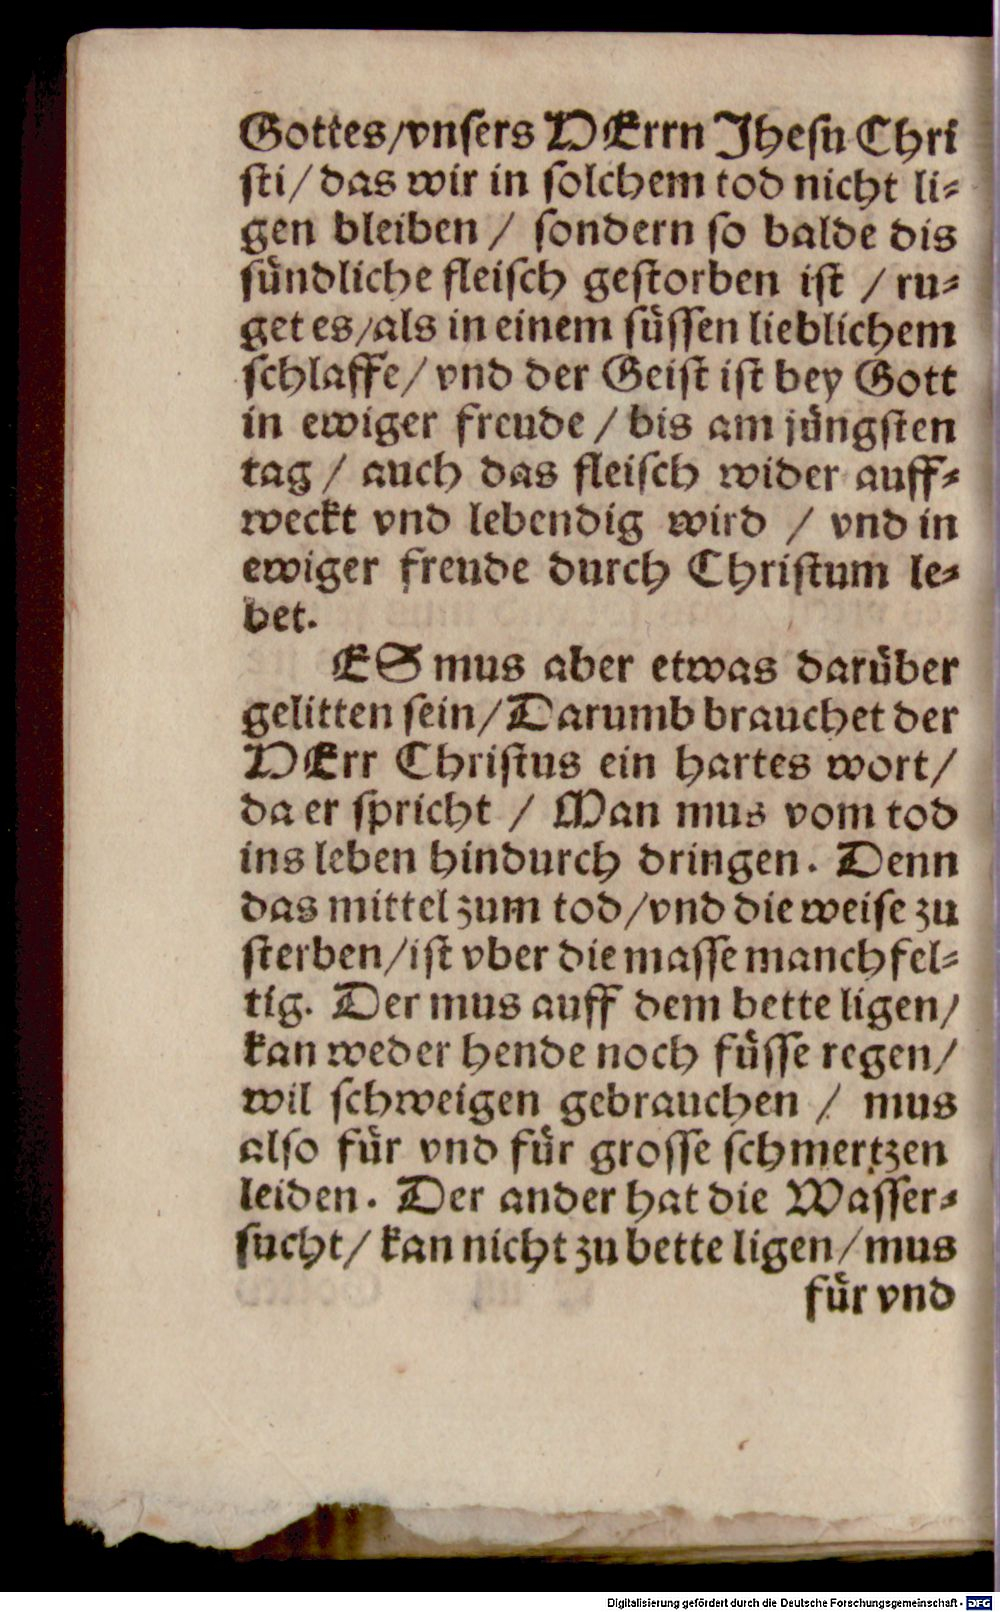 Gottes/vnsers HErrn Jhesu Chri
sti/ das wir in solchem tod nicht li-
gen bleiben / sondern so balde dis
sündliche fleisch gestorben ist / ru-
get es/als in einem süssen lieblichem
schlaffe/ vnd der Geist ist bey Gott
in ewiger freude / bis am jüngsten
tag / auch das fleisch wider auff-
weckt vnd lebendig wird / vnd in
ewiger freude durch Christum le-
bet.
ES mus aber etwas darüber
gelitten sein/Darumb brauchet der
HErr Christus ein hartes wort/
da er spricht / Man mus vom tod
ins leben hindurch dringen. Denn
das mittel zum tod/vnd die weise zu
sterben/ist vber die masse manchfel-
tig. Der mus auff dem bette ligen/
kan weder hende noch füsse regen/
wil schweigen gebrauchen / mus
also für vnd für grosse schmertzen
leiden. Der ander hat die Wasser-
sucht/ kan nicht zu bette ligen/mus
für vnd
Digitalisierung gefördert durch die Deutsche Forschungsgemeinschaft - DFG